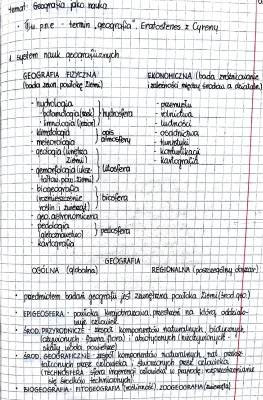 temat: Geografia jako nauka
• III w. p.n.e - termin "geografia". Eratostenes z Cyreny
1. System nauk geograficznych
GEOGRAFIA FIZYCZNA EKONOMICZNA (bada zróżnicowanie
(bada zewn. powłokę Ziemi) i zależności między środow. a działaln.)
- hydrologia - przemysłu
- potamologia (rzek) hydrosfera - rolnictwa
- limnologia (jezior) - ludności
- klimatologia opis - osadnictwa
- meteorologia atmosfery - turystyki
- geologia (wnętrza - komunikacji
Ziemi) litosfera - kartografia
- gemorfologia (ukszt-
łtow. pow. Ziemi)
- biogeografia
(rozmieszczenie biosfera
roślin i zwierząt)
- geo. astronomiczna
- pedologia
(gleboznawstwo) pedosfera
- kartografia
GEOGRAFIA
OGÓLNA (globalna) REGIONALNA (poszczególny obszar)
• przedmiotem badań geografii jest zewnętrzna powłoka Ziemi (środ. geo.)
• EPIGEOSFERA - powłoka krajobrazowa, przestrzeń na którą oddziału-
je człowiek
• ŚROD. PRZYRODNICZE - zespół komponentów naturalnych, biotycznych
(ożywionych - fauna, flora) i abiotycznych (nieożywionych -
skały, woda, powietrze)
• ŚROD. GEOGRAFICZNE - zespół komponentów naturalnych, prze-
kształconych przez człowieka i stworzonych przez człowieka
(TECHNOSFERA sfera ingerencji człowieka w przyrodę
się środków technicznych)
• BIOGEOGRAFIA - FITOGEOGRAFIA (roślinność), ZOOGEOGRAFIA (zwierzęta)